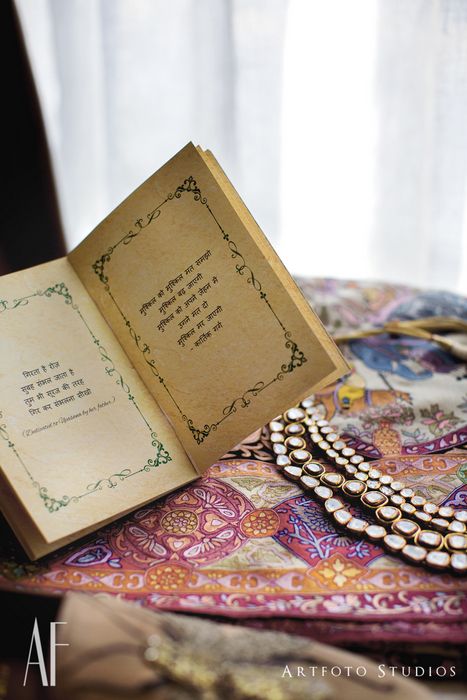 गिरता है रोज़
सुबह संभल जाता है
तुम भी सूरज की तरह
गिर कर संभलना सीखो
(Dedicated to by her father.)
मुश्किल को मुश्किल मत समझो
मुश्किल बढ़ जाएगी
मुश्किल को अपने ज़ेहन में
आने मत दो
मुश्किल मर जाएगी
- कार्तिक
AF
ARTFOTO STUDIOS